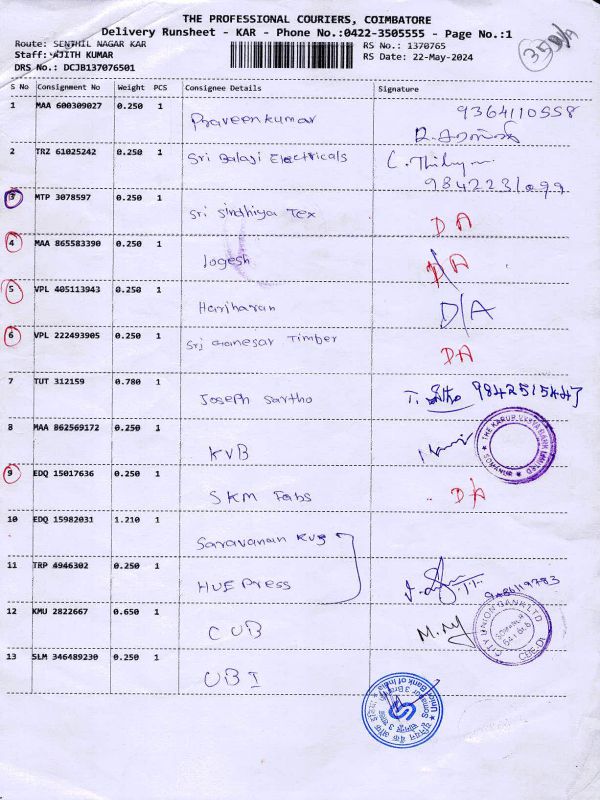 THE PROFESSIONAL COURIERS, COIMBATORE
Delivery Runsheet - KAR - Phone No.:0422-3505555 - Page No.:1
Route: SENTHIL NAGAR KAR
RS No.: 1370765
Staff: AJITH KUMAR
RS Date: 22-May-2024
DRS No.: DCJB137076501
S No Consignment No Weight PCS Consignee Details Signature
1 MAA 600309027 0.250 1 Praveenkumar 9364110558
2 TRZ 61025242 0.250 1 Sri Balaji Electricals C.
3 MTP 3078597 0.250 1 Sri Sindhiya Tex DA
4 MAA 865583390 0.250 1 Logesh D/A
5 VPL 405113943 0.250 1 Hariharan D/A
6 VPL 222493905 0.250 1 Sri Ganesar Timber DA
7 TUT 312159 0.780 1 Joseph Sartho
8 MAA 862569172 0.250 1 KVB
THE KARUR VYSYA BANK LIMITED
SOMANUR
9 EDQ 15017636 0.250 1 SKM Fabs D/A
10 EDQ 15982031 1.210 1 Saravanan
11 TRP 4946302 0.250 1 HUE Press
12 KMU 2822667 0.650 1 CUB
CITY UNION BANK LTD
13 SLM 346489230 0.250 1 UBI
Union Bank of India